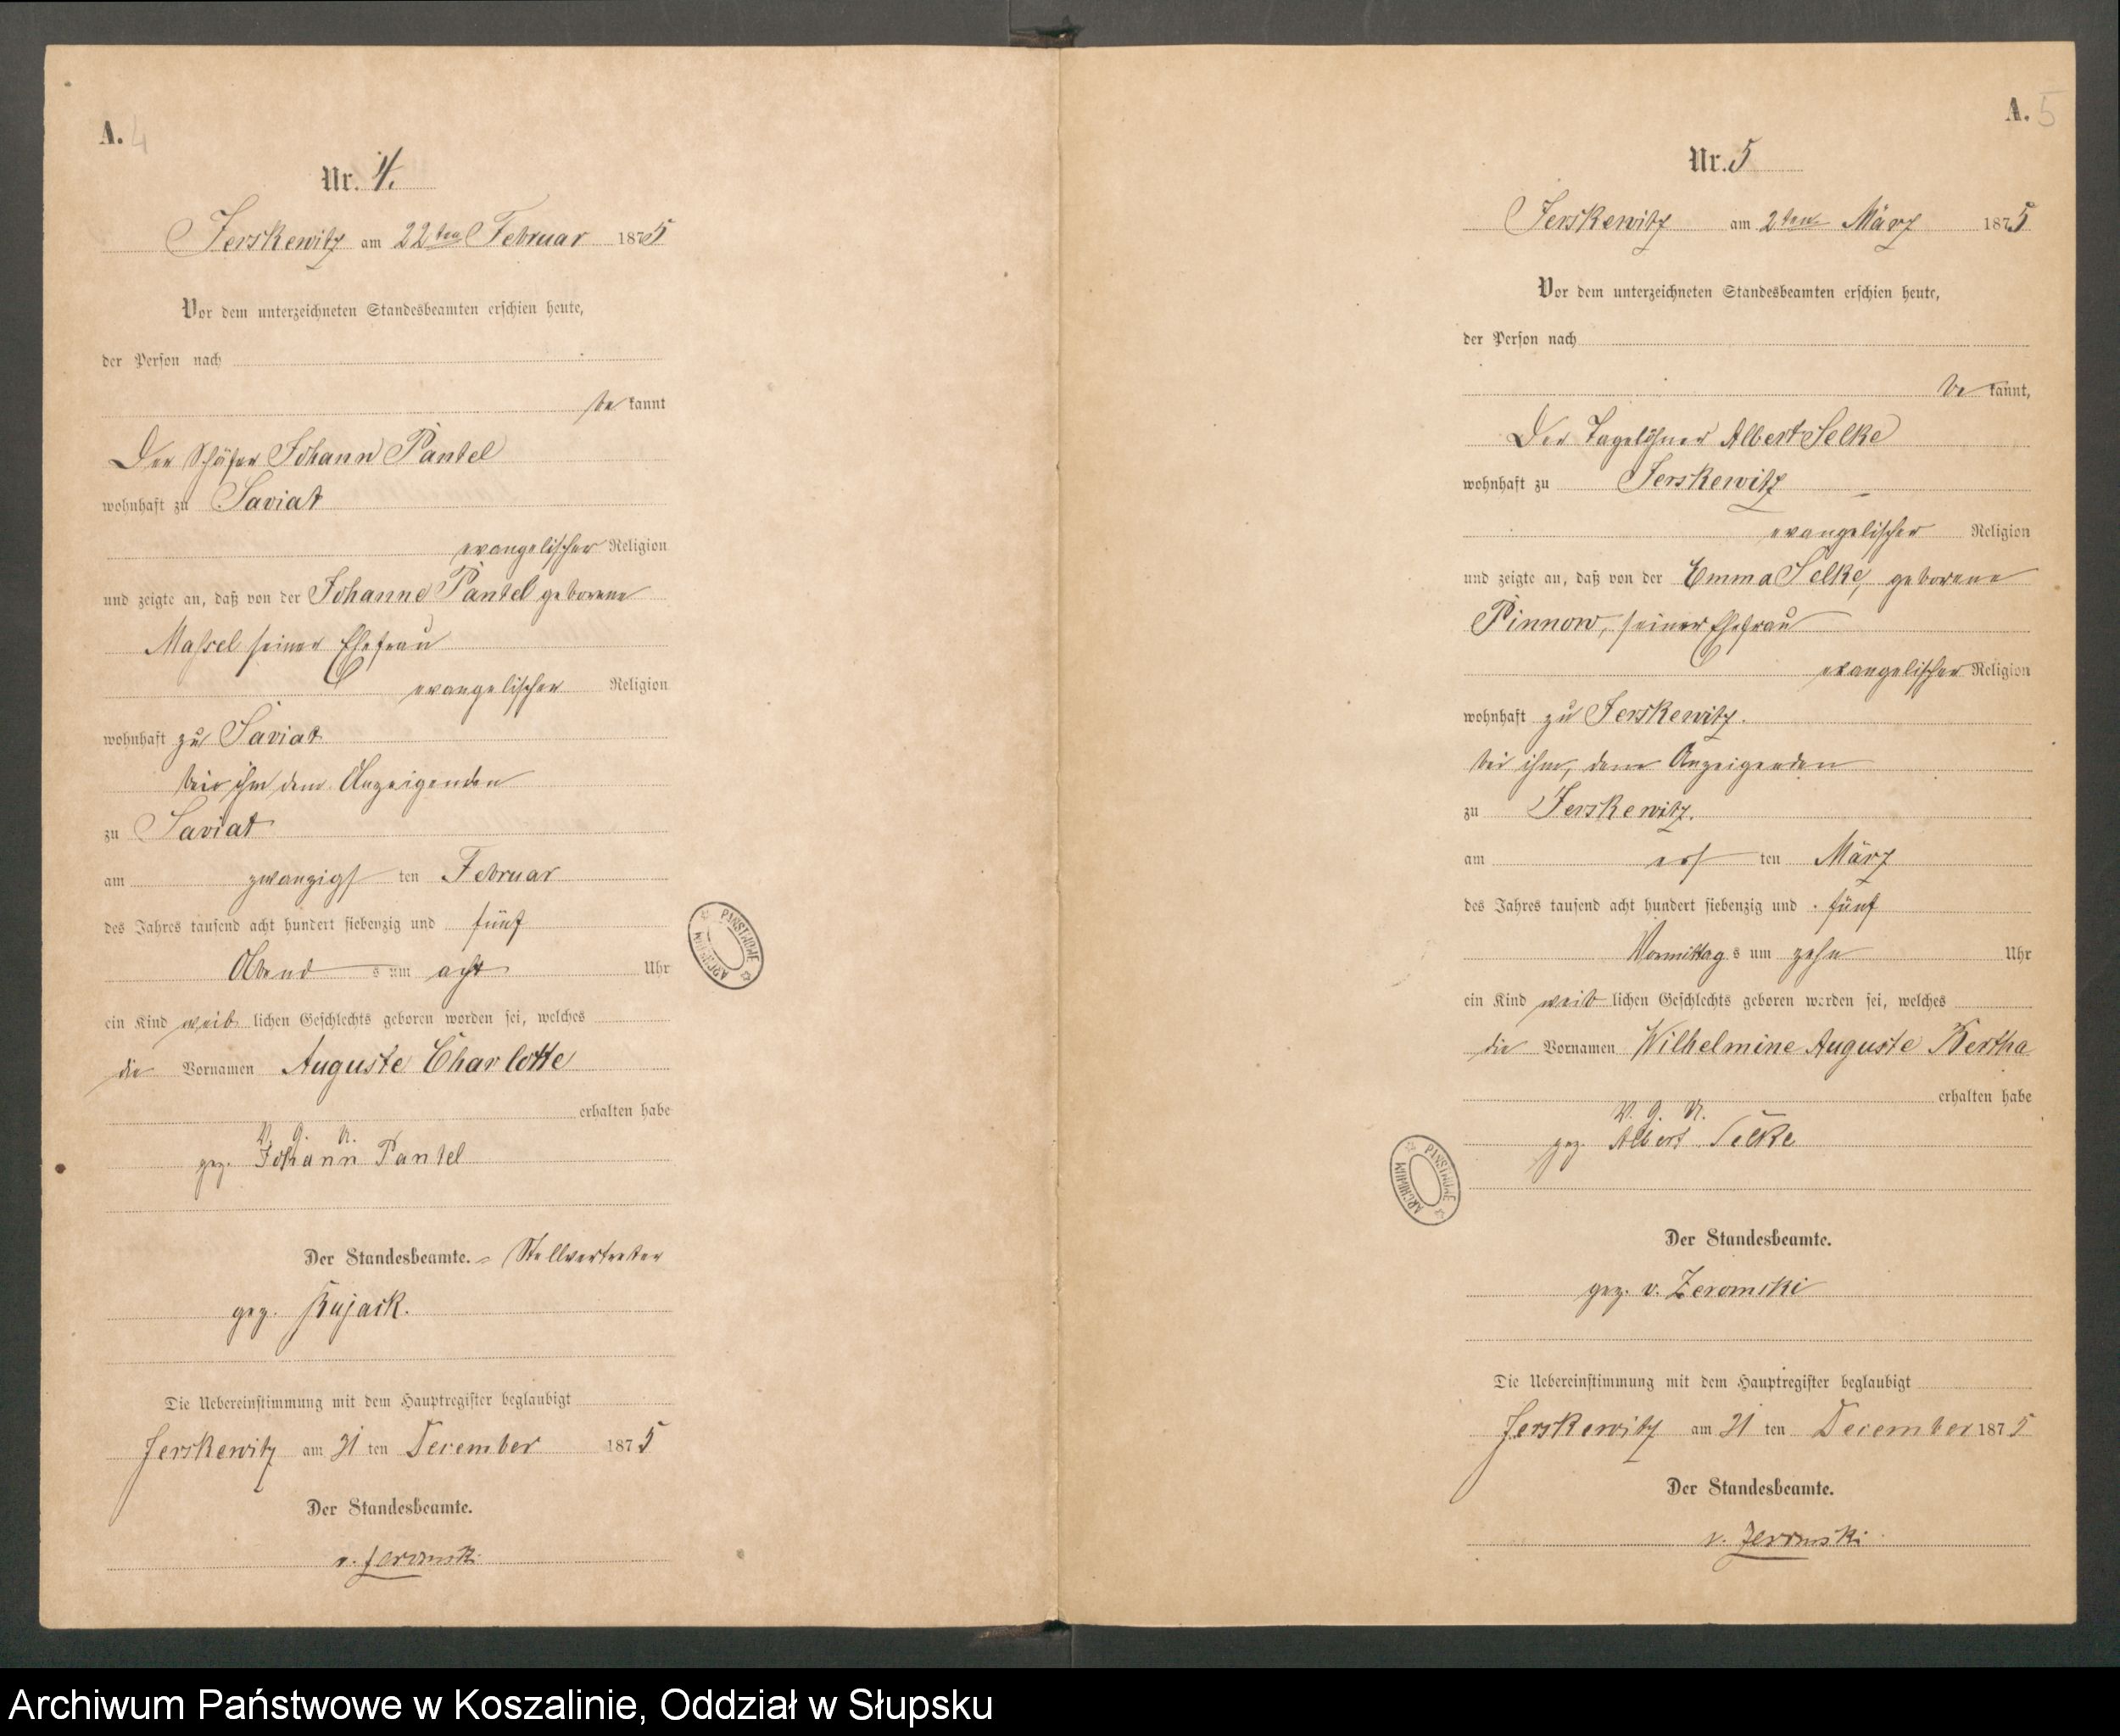 A. 4
Nr. 4.
Jerskewitz am 22ten Februar 1875
Vor dem unterzeichneten Standesbeamten erschien heute,
der Person nach
be kannt
Der Schäfer Johann Pantel
wohnhaft zu Saviat
evangelischer Religion
und zeigte an, daß von der Johanne Pantel geborene
Massel seiner Ehefrau
evangelischer Religion
wohnhaft zu Saviat
bei ihm dem Anzeigenden
zu Saviat
am zwanzigst ten Februar
des Jahres tausend acht hundert siebenzig und fünf
Abend s um acht Uhr
ein Kind weib lichen Geschlechts geboren worden sei, welches
die Vornamen Auguste Charlotte
erhalten habe
V. g. U.
gez. Johann Pantel
Der Standesbeamte. - Stellvertreter
gez. Kujack.
Die Uebereinstimmung mit dem Hauptregister beglaubigt
Jerskewitz am 31 ten December 1875
Der Standesbeamte.
v. Zeromski
PAŃSTWOWE ARCHIWUM
A. 5
Nr. 5
Jerskewitz am 2ten März 1875
Vor dem unterzeichneten Standesbeamten erschien heute,
der Person nach
be kannt,
Der Tagelöhner Albert Selke
wohnhaft zu Jerskewitz
evangelischer Religion
und zeigte an, daß von der Emma Selke, geborene
Pinnow, seiner Ehefrau
evangelischer Religion
wohnhaft zu Jerskewitz.
bei ihm, dem Anzeigenden
zu Jerskewitz.
am erst ten März
des Jahres tausend acht hundert siebenzig und fünf
Vormittag s um zehn Uhr
ein Kind weib lichen Geschlechts geboren worden sei, welches
die Vornamen Wilhelmine Auguste Bertha
erhalten habe
V. g. U.
gez. Albert Selke
Der Standesbeamte.
gez. v. Zeromski
Die Uebereinstimmung mit dem Hauptregister beglaubigt
Jerskewitz am 31 ten December 1875
Der Standesbeamte.
v. Zeromski
PAŃSTWOWE ARCHIWUM
Archiwum Państwowe w Koszalinie, Oddział w Słupsku